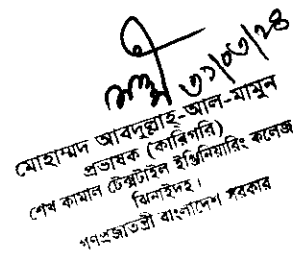 ৩১/০৩/২৪
মোহাম্মদ আবদুল্লাহ-আল-মামুন
প্রভাষক (কারিগরি)
শেখ কামাল টেক্সটাইল ইঞ্জিনিয়ারিং কলেজ
ঝিনাইদহ।
গণপ্রজাতন্ত্রী বাংলাদেশ সরকার